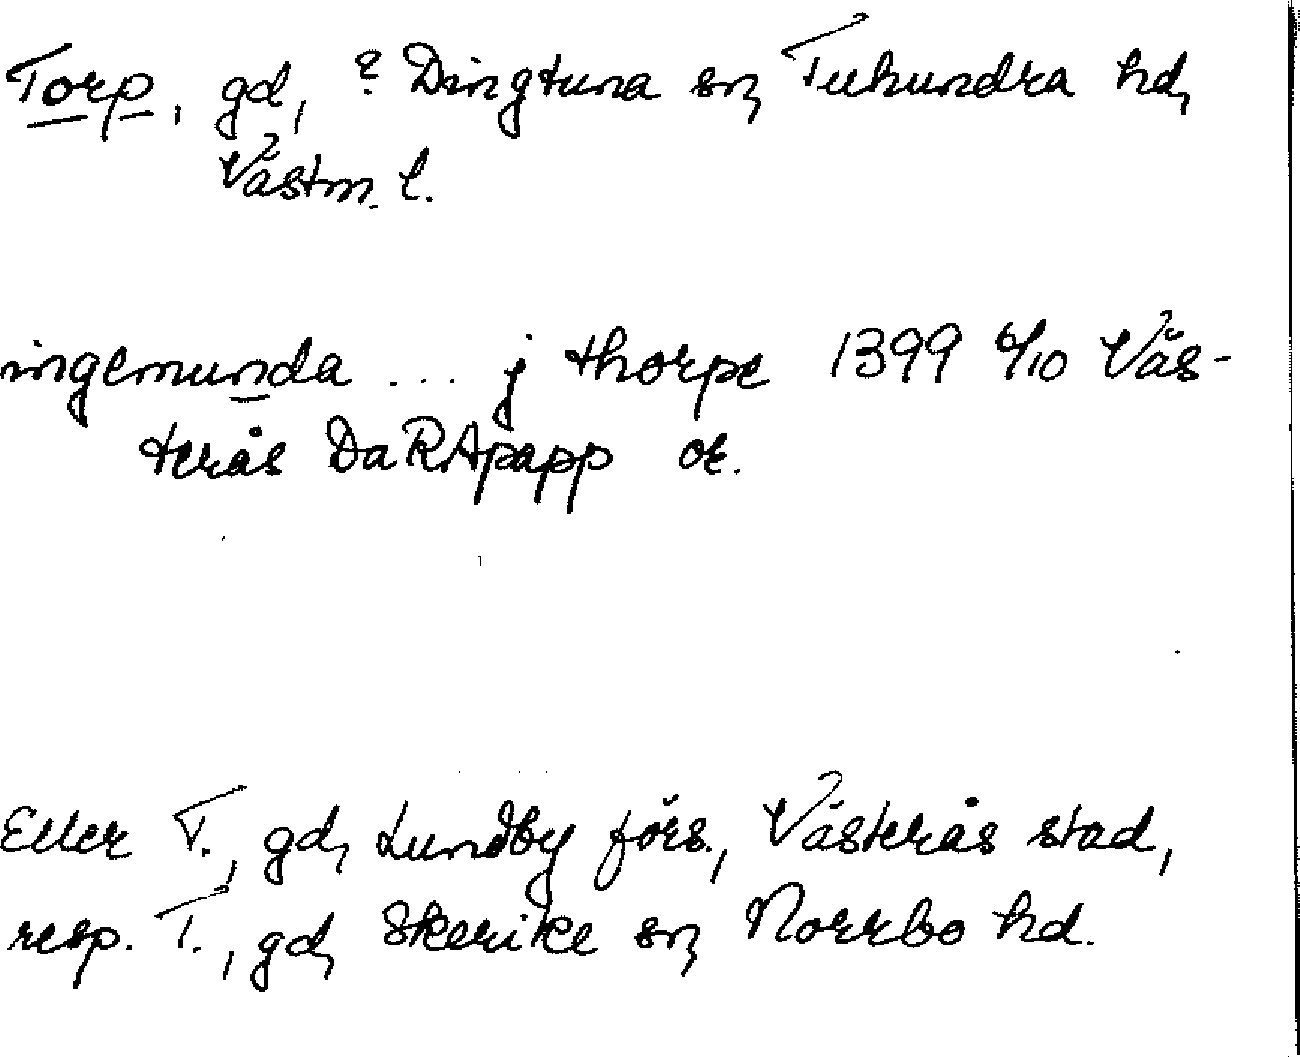 Torp, gd, ? Dingtuna sn, Tuhundra hd,
Västm. l.
ingemunda ... j thorpe 1399 6/10 Väs-
terås DaRApapp or.
Eller T., gd, Lundby förs., Västerås stad,
resp. T., gd, Skerike sn, Norrbo hd.